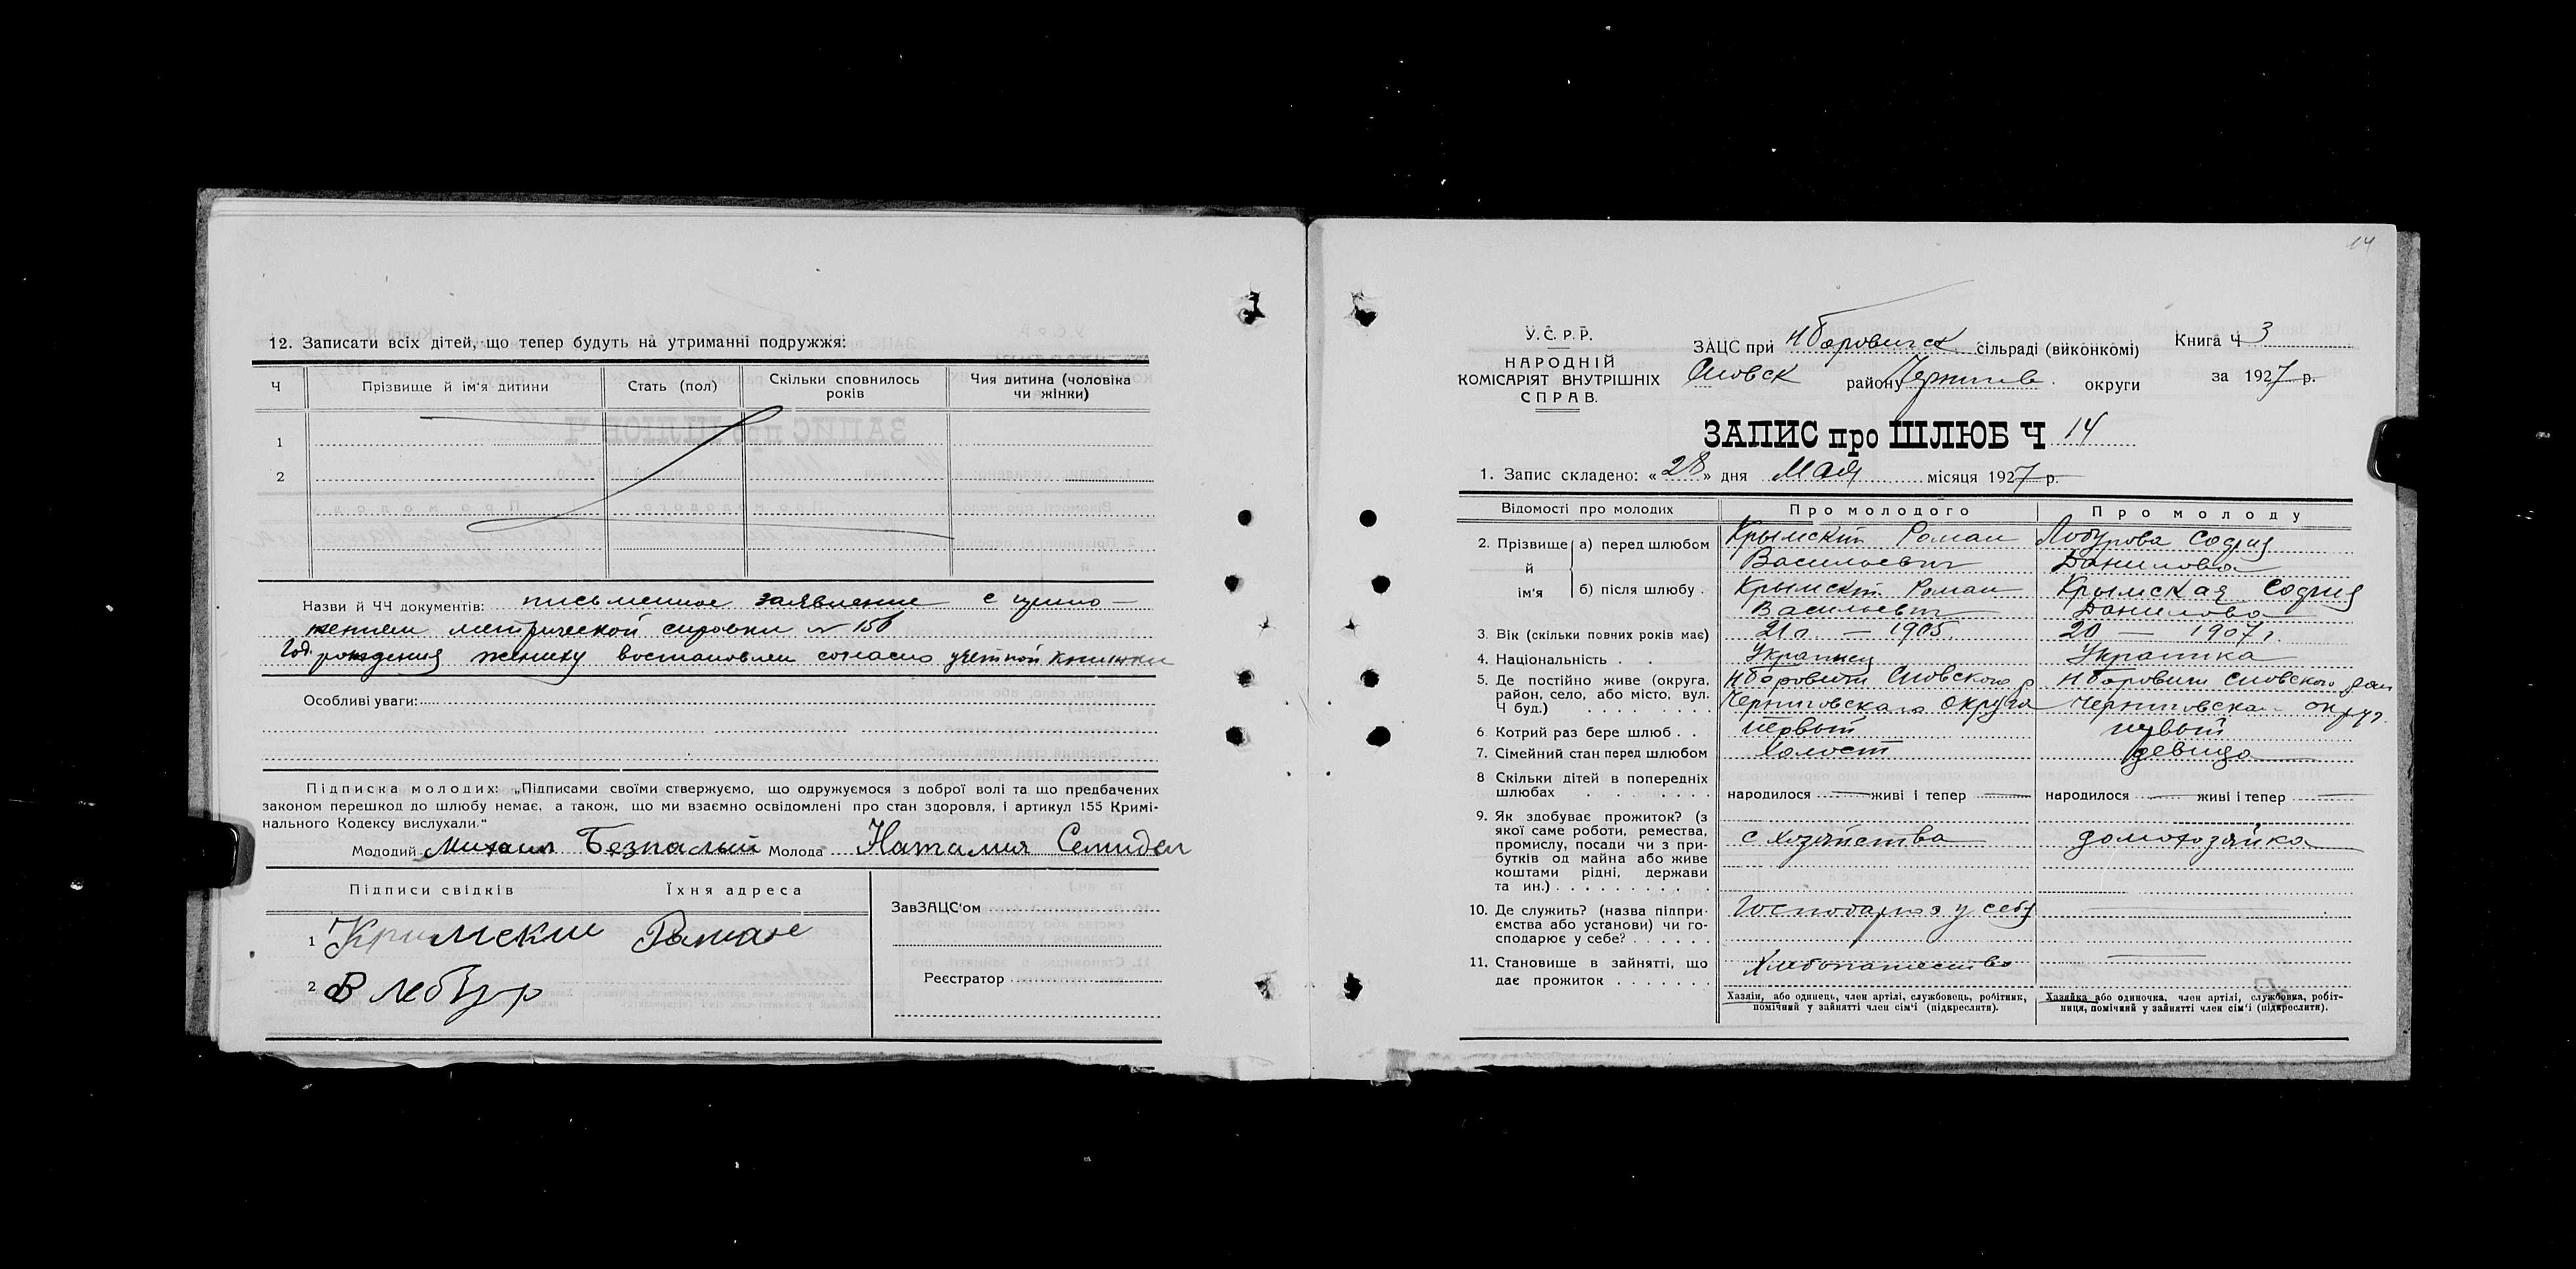 12. Записати всіх дітей, що тепер будуть на утриманні подружжя:
Ч Прізвище й ім'я дитини Стать (пол) Скільки сповнилось років Чия дитина (чоловіка чи жінки)
1
2
Назви й ЧЧ документів: письменное заявление с прило-
жением метрической справки № 156
Год рождения жениху востановлен согласно учетной книжки
Особливі уваги:
Підписка молодих: „Підписами своїми стверджуємо, що одружуємося з доброї волі та що предбачених
законом перешкод до шлюбу немає, а також, що ми взаємно освідомлені про стан здоровля, і артикул 155 Кримі-
нального Кодексу вислухали."
Молодий Михаил Безпалый Молода Наталия
Підписи свідків Їхня адреса
1 Кримский Роман
2 В Лебзур
ЗавЗАЦС'ом
Реєстратор
14
У.С.Р.Р.
НАРОДНІЙ
КОМІСАРІЯТ ВНУТРІШНІХ
СПРАВ.
ЗАЦС при Нборовичск сільраді (виконкомі) Книга Ч 3
Сновск району Чернигов. округи за 1927 р.
ЗАПИС про ШЛЮБ Ч 14
1. Запис складено: «28» дня Мая місяця 1927 р.
Відомості про молодих Про молодого Про молоду
2. Прізвище й ім'я а) перед шлюбом Крымский Роман Васильевич София Данилова
б) після шлюбу. Крымский Роман Васильевич Крымская София Данилова
3. Вік (скільки повних років має) 21 г. — 1905 20 — 1907 г.
4. Національність . . Украинец Украинка
5. Де постійно живе (округа, Нборовичи Сновского р Нборовичи Сновского рай
район, село, або місто, вул. Черниговская округа Черниговская округ.
Ч буд.)
6 Котрий раз бере шлюб . . первый первый
7. Сімейний стан перед шлюбом Холост девица
8 Скільки дітей в попередніх
шлюбах народилося — живі і тепер — народилося — живі і тепер —
9. Як здобуває прожиток? (з
якої саме роботи, ремества,
промислу, посади чи з при- с хозяйства домохозяйка
бутків од майна або живе
коштами рідні, держави
та ин.)
10. Де служить? (назва підпри- Господарює у себе
ємства або установи) чи го-
сподарює у себе?
11. Становище в зайнятті, що Хлебопашество
дає прожиток
Хазяїн, або одинець, член артілі, службовець, робітник,
помічний у зайнятті член сім'ї (підкреслити).
Хазяйка або одиночка, член артілі, службовка, робіт-
ниця, помічний у зайнятті член сім'ї (підкреслити).